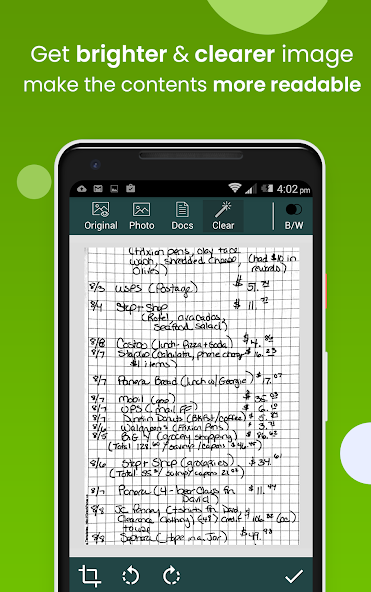 Get brighter & clearer image
make the contents more readable
4:02 pm
Original Photo Docs Clear B/W
(Frixion pens, clay tape,
wash, shredded cheese, (had $10 in
Olives) rewards)
8/3 USPS (Postage) $ 51.
8/4 Stop & Shop $ 11.
(Rotel, avocados,
seafood salad)
8/8 Costco (lunch - pizza & soda) $ 4.
8/7 Staples (calculator, phone charger $ 16.23
$1 items)
8/7 Panera Bread (lunch w/ Georgie) $ 17.07
8/7 Mobil (gas) $ 35.
8/7 UPS (mail FF) $ 6.
8/7 Dunkin Donuts (Bkfst/coffee) $ 5.
8/6 Walgreens (Frixion Pens) $ 3.
8/5 BG (grocery shopping) $ 86.
(Total 128. saving/coupons $
8/6 Stop & Shop (groceries) $ 34.61
(Total 55. saving/coupons 21.
8/7 Panera (4 - David) $ 11.49
8/8 JC Penny (t-shirts for David,
clearance clothing) (48) credit $ 106.
8/8 Sephora (Hope in a Jar) $ 49.